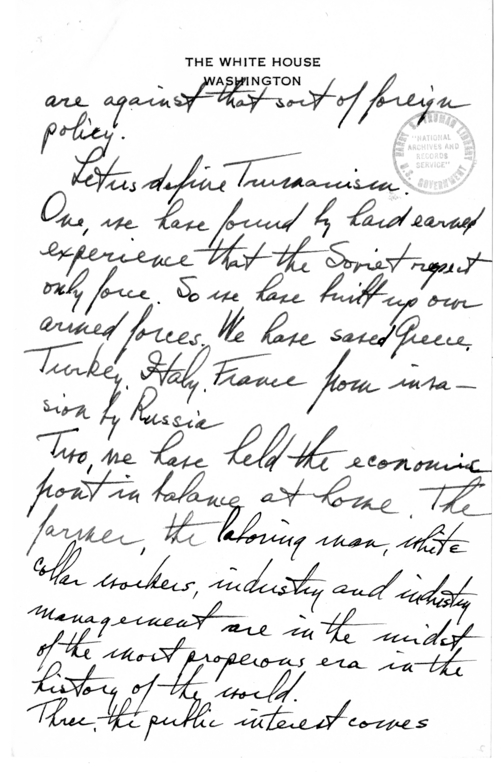 THE WHITE HOUSE
WASHINGTON
are against that sort of foreign
policy.
HARRY S. TRUMAN LIBRARY
"NATIONAL
ARCHIVES AND
RECORDS
SERVICE"
U.S. GOVERNMENT
Let us define Trumanism.
One, we have found by hard earned
experience that the Soviet respect
only force. So we have built up our
armed forces. We have saved Greece,
Turkey, Italy, France from inva-
sion by Russia
Two, we have held the economic
front in balance at home. The
farmer, the laboring man, white
collar workers, industry and industry
management are in the midst
of the most properous era in the
history of the world.
Three, the public interest comes